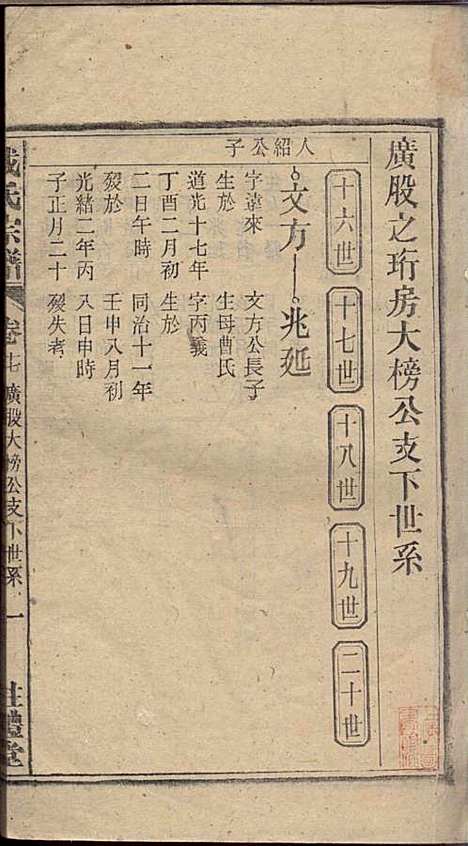 廣股之珩房大榜公支下世系
十六世 十七世 十八世 十九世 二十世
人紹公子
文方 兆延
字遠來
生於
道光十七年
丁酉二月初
二日午時
歿於
光緒二年丙
子正月二十
文方公長子
生母曹氏
字丙義
生於
同治十一年
壬申八月初
八日申時
歿失考
氏宗譜
卷七 廣股大榜公支下世系 一
禮堂